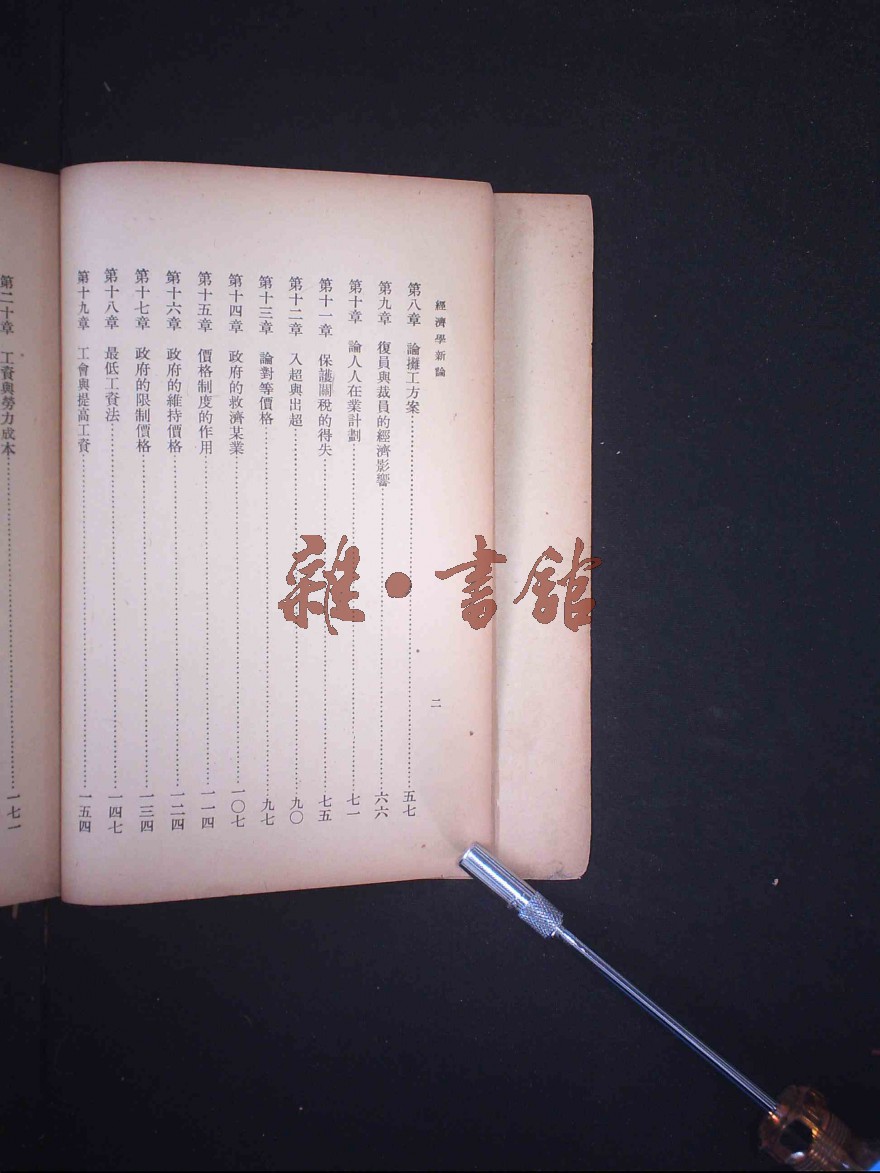 經濟學新論
二
第八章 論攤工方案⋯⋯五七
第九章 復員與裁員的經濟影響⋯⋯六六
第十章 論人人在業計劃⋯⋯七一
第十一章 保護關稅的得失⋯⋯七五
第十二章 入超與出超⋯⋯九〇
第十三章 論對等價格⋯⋯九七
第十四章 政府的救濟某業⋯⋯一〇七
第十五章 價格制度的作用⋯⋯一一四
第十六章 政府的維持價格⋯⋯一二四
第十七章 政府的限制價格⋯⋯一三四
第十八章 最低工資法⋯⋯一四七
第十九章 工會與提高工資⋯⋯一五四
第二十章 工資與勞力成本⋯⋯一七一
雜·書館